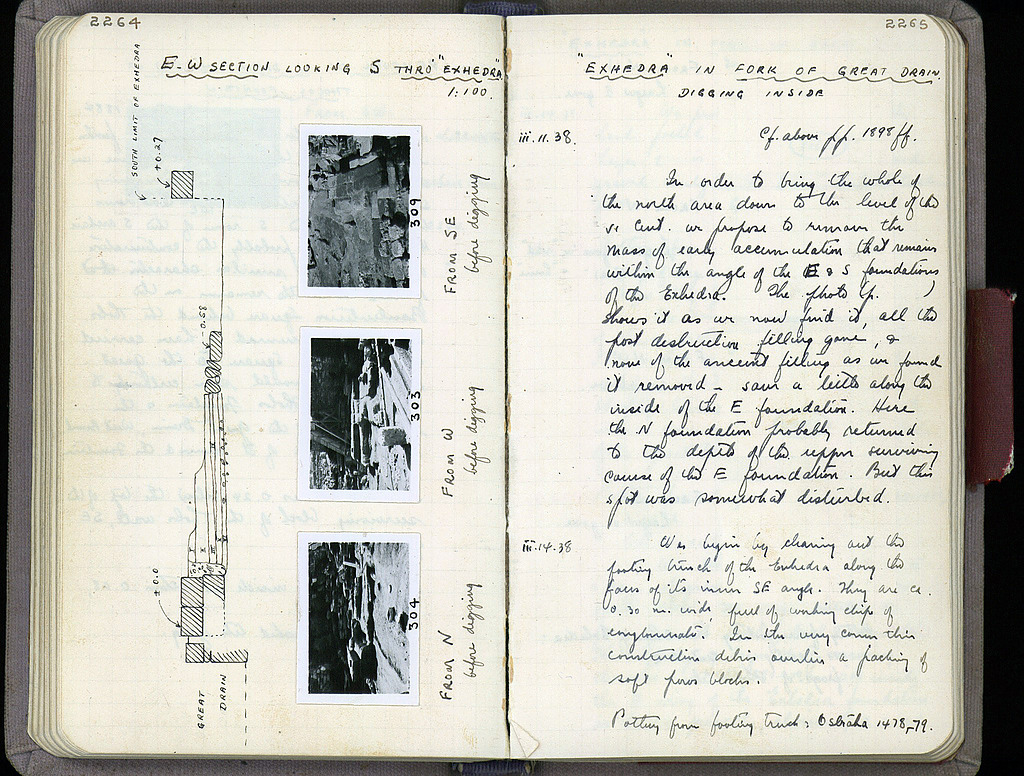 2264
E-W SECTION LOOKING S THRO' "EXHEDRA"
1:100.
SOUTH LIMIT OF EXHEDRA
+0.27
-0.58
±0.0
GREAT
DRAIN
309
FROM SE
before digging
303
FROM W
before digging
304
FROM N
before digging
2265
"EXHEDRA" IN FORK OF GREAT DRAIN
DIGGING INSIDE
iii.11.38.
Cf. above pp. 1898 ff.
In order to bring the whole of
the north area down to the level of the
vi cent. we propose to remove the
mass of early accumulation that remains
within the angle of the E & S foundations
of the Exhedra. The photo (p. )
shows it as we now find it, all the
post destruction filling gone, &
none of the ancient filling as we found
it removed - save a little along the
inside of the E foundation. Here
the N foundation probably returned
to the depth of the upper surviving
course of the E foundation. But this
spot was somewhat disturbed.
iii.14.38
We begin by clearing out the
footing trench of the Exhedra along the
faces of its inner SE angle. They are ca.
0.30 m. wide, full of working chips of
conglomerate. In the very corner this
construction debris overlies a packing of
soft poros blocks.
Pottery from footing trench: Ostraka 1478,-79.